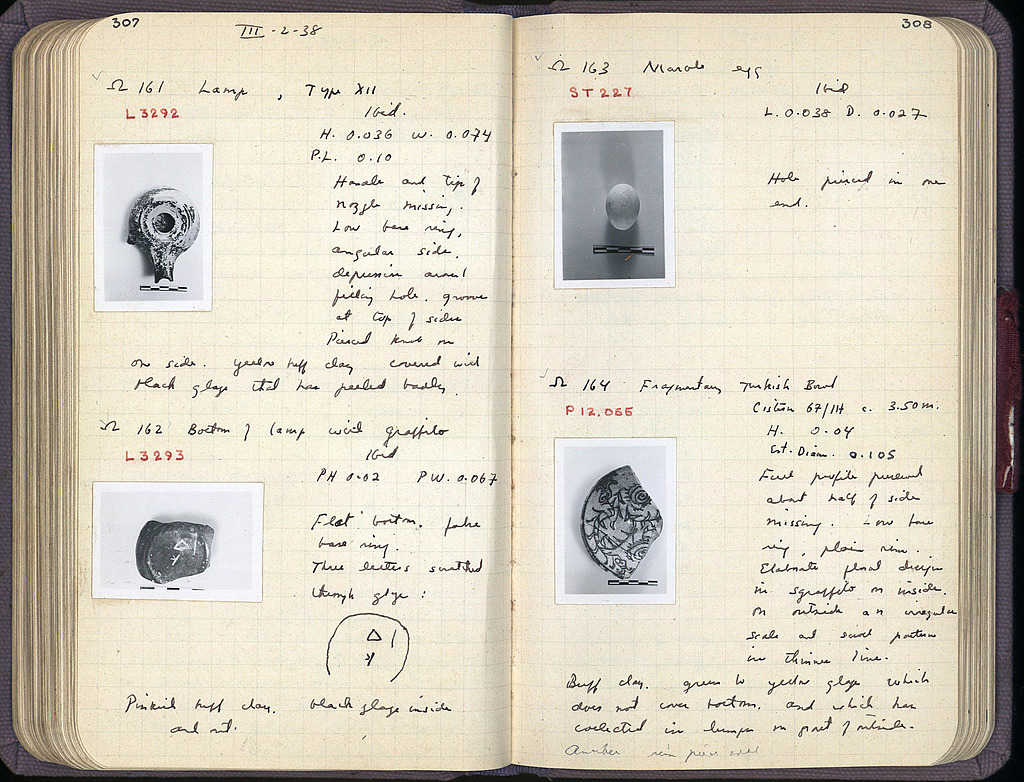 307
III-2-38
Ω 161 Lamp, Type XII
L 3292
Ibid.
H. 0.036 W. 0.074
P.L. 0.10
Handle and tip of
nozzle missing.
Low base ring,
angular side.
depression around
filling hole. groove
at top of sides
Pierced knob on
one side. yellow buff clay covered with
black glaze that has peeled badly.
Ω 162 Bottom of lamp with graffito
L 3293
Ibid
PH 0.02 PW. 0.067
Flat bottom. false
base ring.
Three letters scratched
through glaze:
Δ Ι
Κ
Pinkish buff clay. black glaze inside
and out.
308
Ω 163 Marble egg
ST 227
Ibid
L. 0.038 D. 0.027
Hole pierced in one
end.
Ω 164 Fragmentary Turkish Bowl
P 12,055
Cistern 67/ΙΗ c. 3.50 m.
H. 0.04
Est. Diam. 0.105
Full profile preserved
about half of side
missing. Low base
ring, plain rim.
Elaborate floral design
in sgraffito on inside.
on outside an irregular
scale and swirl pattern
in thinner line.
Buff clay. green to yellow glaze which
does not cover bottom, and which has
collected in lumps on part of outside.
Another rim piece added